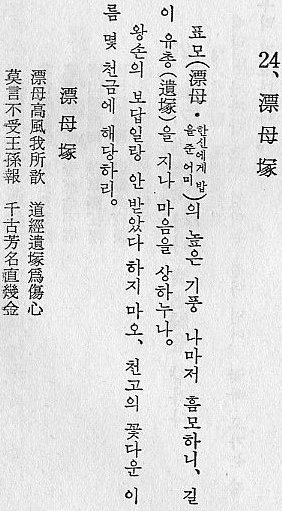 24、漂母塚
표모(漂母·한신에게 밥을 준 어미)의 높은 기풍 나마저 흠모하니、길
이 유총(遺塚)을 지나 마음을 상하누나。
왕손의 보답일랑 안 받았다 하지 마오、천고의 꽃다운 이
름 몇 천금에 해당하리。
漂母塚
漂母高風我所歆 道經遺塚爲傷心
莫言不受王孫報 千古芳名直幾金